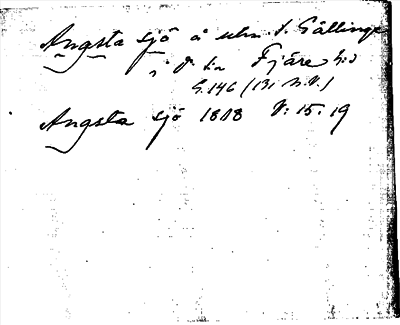 Angsta sjö å utm. t. Gällinge
i d. s:n Fjäre h:d
G.146 (131 N.V.)
Angsta sjö 1808 V: 15. 19